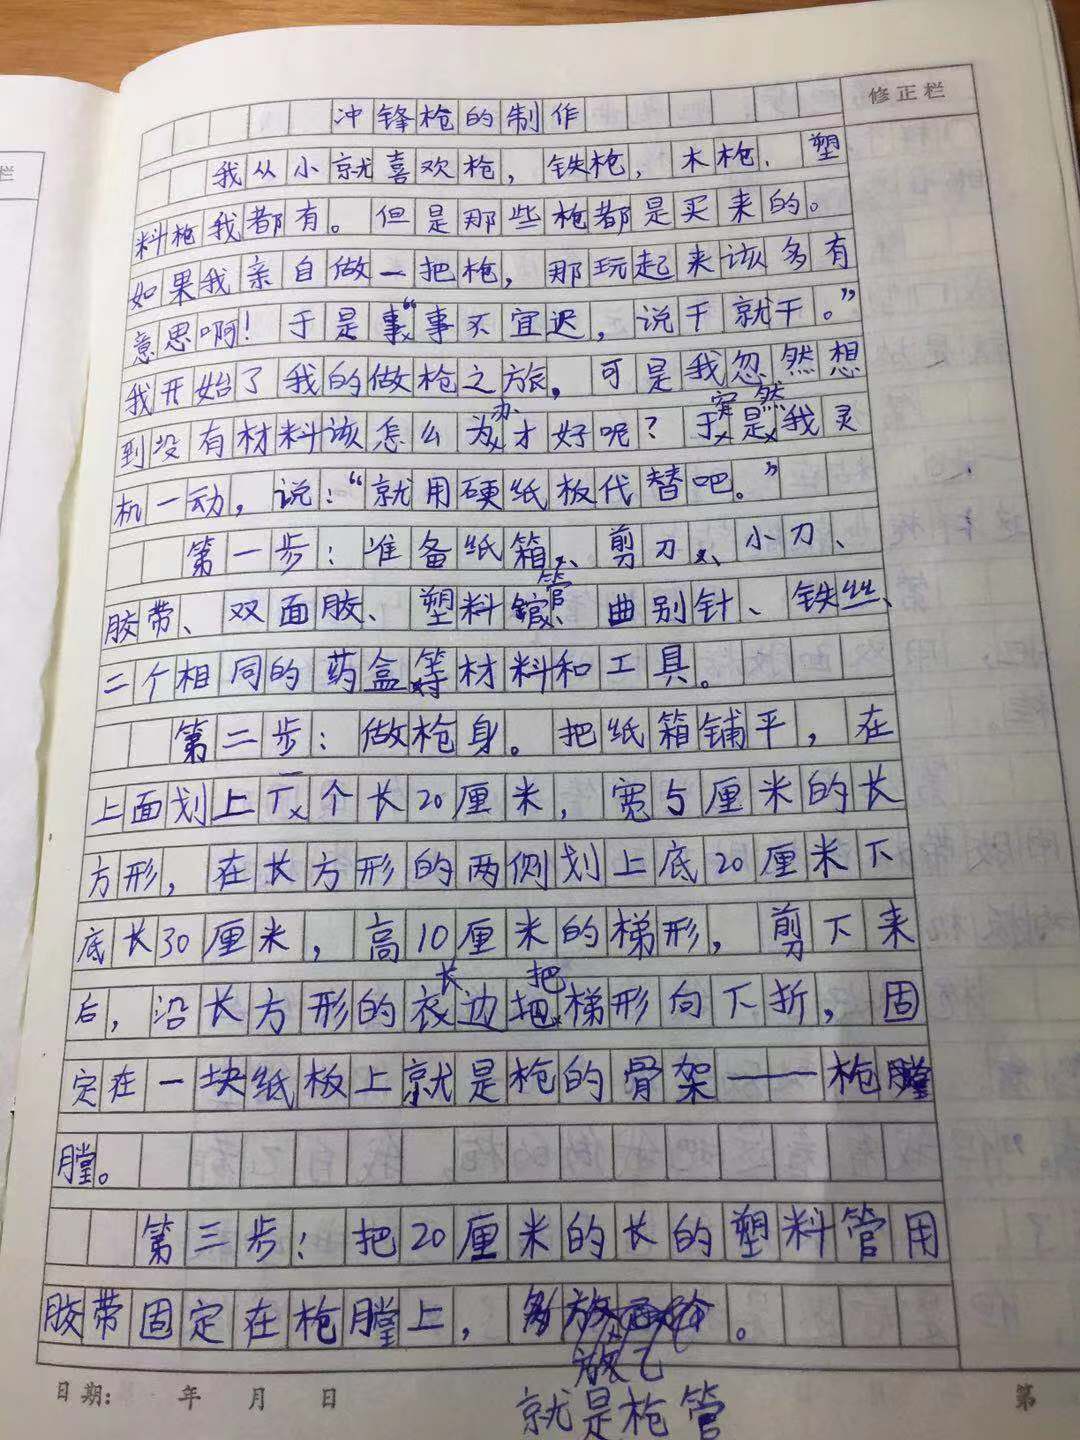 修正栏
冲锋枪的制作
我从小就喜欢枪，铁枪，木枪，塑
料枪我都有。但是那些枪都是买来的。
如果我亲自做一把枪，那玩起来该多有
意思啊！于是“事不宜迟，说干就干。”
我开始了我的做枪之旅。可是我忽然想
到没有材料该怎么办才好呢？突然我灵
机一动，说：“就用硬纸板代替吧。”
第一步：准备纸箱、剪刀、小刀、
胶带、双面胶、塑料管、曲别针、铁丝、
二个相同的药盒等材料和工具。
第二步：做枪身。把纸箱铺平，在
上面划上一个长20厘米，宽5厘米的长
方形，在长方形的两侧划上底20厘米下
底长30厘米，高10厘米的梯形，剪下来
后，沿长方形的长边把梯形向下折，固
定在一块纸板上就是枪的骨架——枪
膛。
第三步：把20厘米的长的塑料管用
胶带固定在枪膛上，。
就是枪管
日期： 年 月 日
第